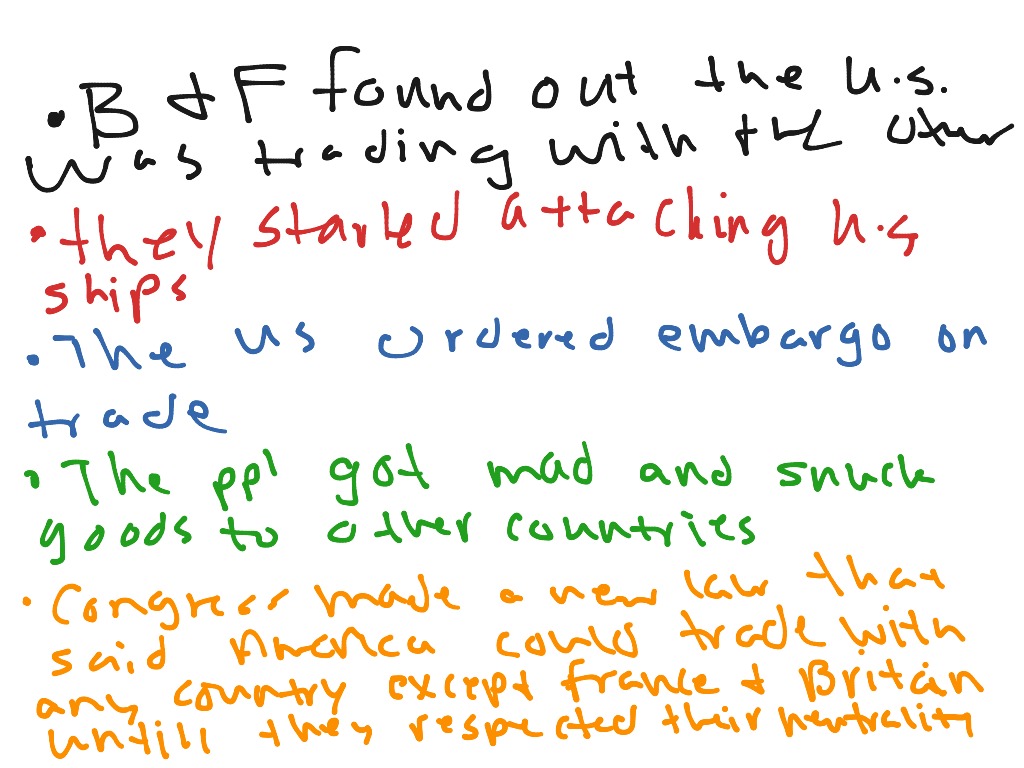 • B & F found out the U.S.
was trading with the other
• they started attaching U.S
ships
• The US ordered embargo on
trade
• The ppl got mad and snuck
goods to other countries
• Congress made a new law that
said America could trade with
any country except france & Britan
untill they respected their neutrality